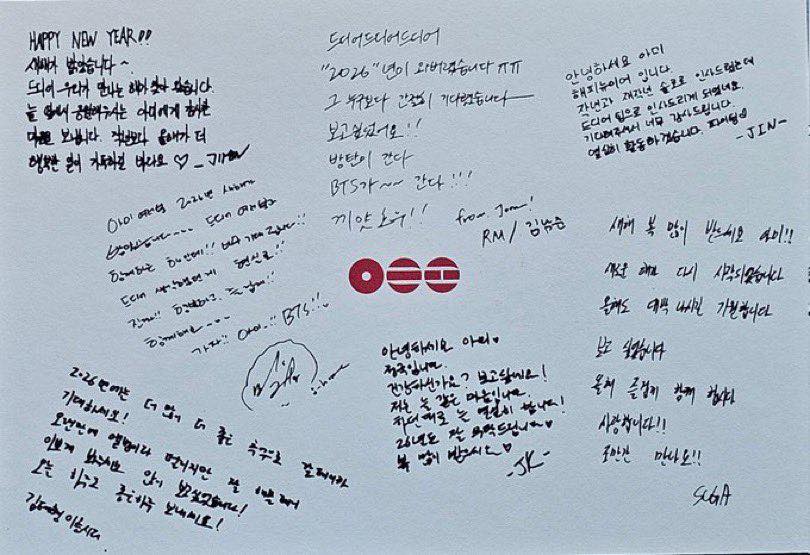 HAPPY NEW YEAR!!
새해가 밝았습니다~
드디어 우리가 만나는 해가 왔습니다.
늘 응원해주시는 아미에게 감사한
마음을 보냅니다. 작년보다 올해가 더
행복한 일이 가득하길 바라요 ♡
드디어드디어드디어
"2026"년이 와버렸습니다 ㅠㅠ
그 누구보다 간절히 기다렸습니다
보고싶었어요!!
방탄이 간다
BTS가~~ 간다!!!
끼얏호우!!
from Joon!
RM / 김남준
안녕하세요 아미
해피뉴이어 입니다.
작년과 재작년 솔로로 인사드렸는데
드디어 팀으로 인사드리게 되었네요.
기다려주셔서 너무 감사드립니다.
열심히 활동하겠습니다 파이팅♡
-JIN-
아미 여러분 2026년 새해가
밝았습니다~~~ 드디어
함께하는 너무 기대
드디어
진짜!!
함께해요~~~
가자!! 아미!! BTS!!
새해 복 많이 받으세요 아미!!
새로운 해가 다시 시작되었습니다
올해도 대박 나시길 기원합니다
보고 싶었습니다
올해 즐겁게 함께 합시다
사랑합니다!!
조만간 만나요!!
SUGA
안녕하세요 아미♡
정국입니다.
건강하신가요? 보고싶네요!
저는 늘 같은 마음입니다.
지난대로 늘 열심히 합니다!
26년도 잘 부탁드립니다♡
복 많이 받으시고♡
-JK-
2026년에는 더 많이 더 좋은
기대하세요!
오랜만에 앨범이라
많이 보고싶었습니다!
오늘 하루도 좋은하루 보내세요!
김태형 이었습니다